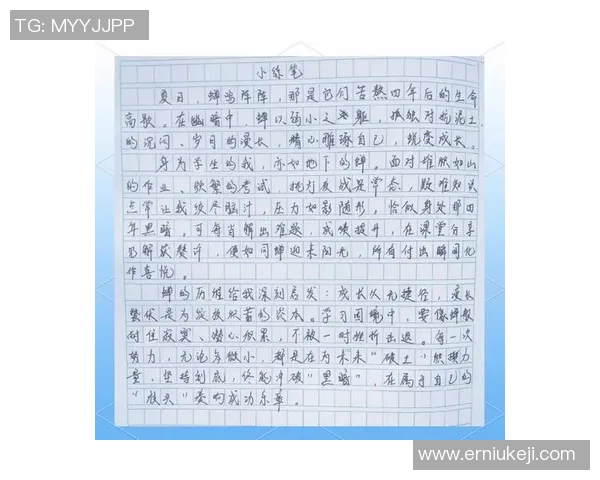 TG: MYYJJPP
小练笔
夏日，蝉鸣阵阵，那是它们苦熬四年后的生命
高歌。在幽暗中，蝉以弱小之躯，孤独对抗泥土
的沉闷、岁月的漫长，精心雕琢自己，蜕变成长。
身为学生的我，亦如地下的蝉。面对堆积如山
的作业、频繁的考试，挑灯夜战是常态，疑难知识
点常让我绞尽脑汁，压力如影随形，恰似身处那四
年黑暗。可每当解出难题，成绩提升，在课堂分享
见解获赞许，便如同蝉迎来阳光，所有付出瞬间化
作喜悦。
蝉的历程给我深刻启发：成长从无捷径，漫长
蛰伏是为发放积蓄的资本。学习困境中，要像蝉般
耐住寂寞、潜心积累，不被一时挫折击退。每一次
努力，无论多微小，都是在为未来“破土”积攒力
量，坚持到底，终能冲破“黑暗”，在属于自己的
“枝头”奏响成功乐章。
www.erniukeji.com